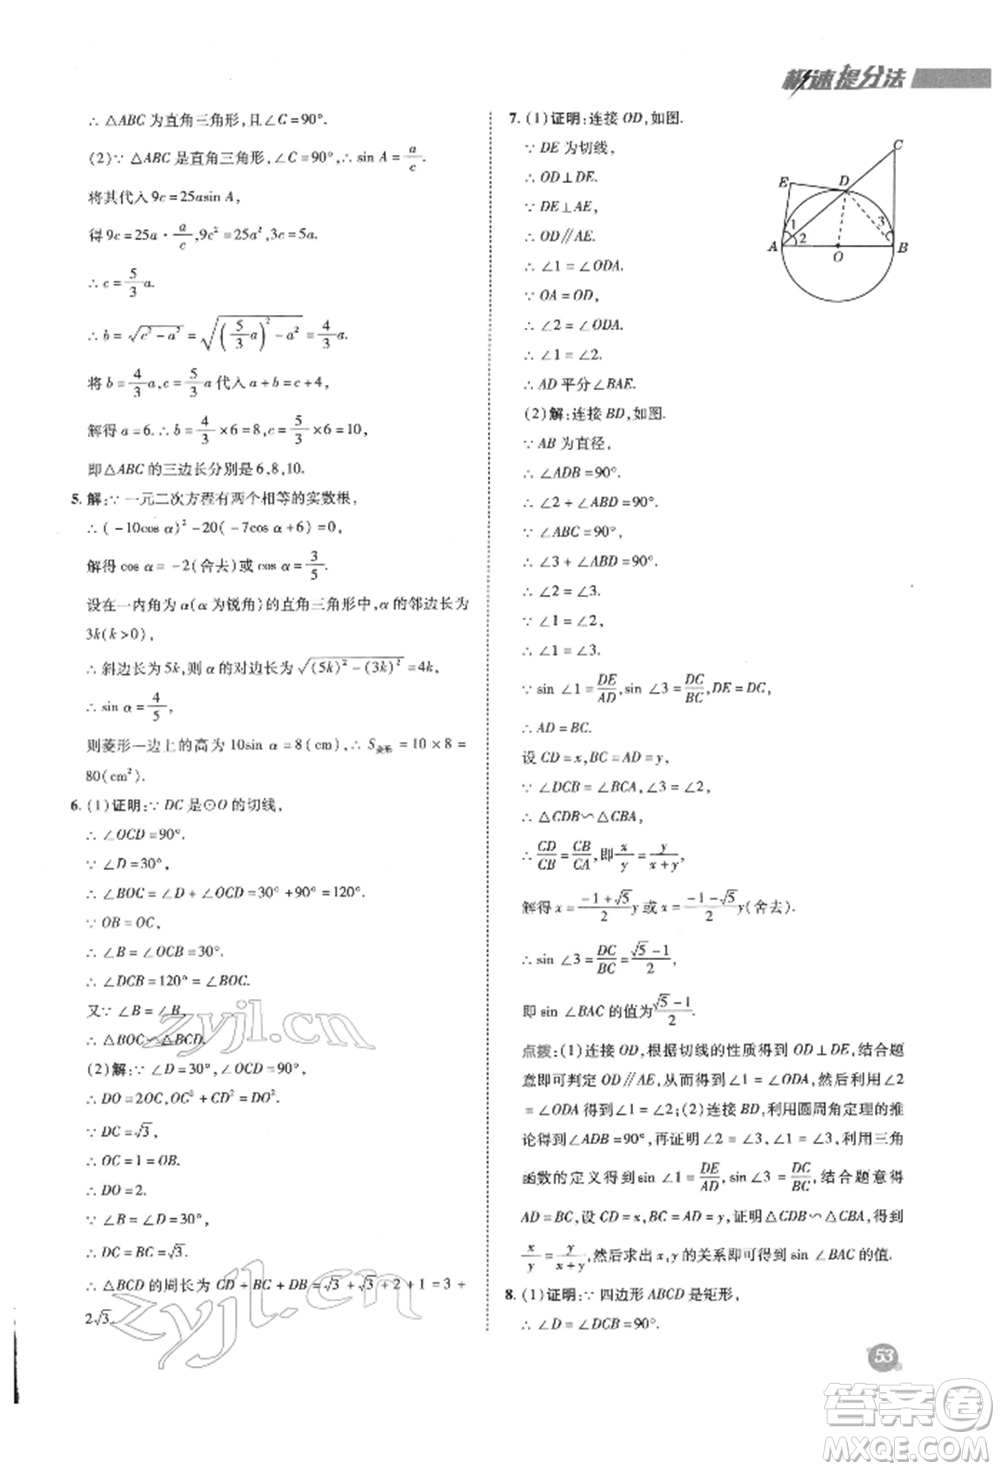 极速提分法
∴ △ABC 为直角三角形,且∠C=90°.
(2)∵ △ABC 是直角三角形,∠C=90°,∴ sin A = a/c.
将其代入 9c=25asin A,
得 9c=25a · a/c, 9c²=25a², 3c=5a.
∴ c = 5/3 a.
∴ b = √(c²-a²) = √((5/3 a)²-a²) = 4/3 a.
将 b = 4/3 a, c = 5/3 a 代入 a+b=c+4,
解得 a=6. ∴ b = 4/3 ×6=8, c = 5/3 ×6=10,
即△ABC 的三边长分别是 6,8,10.
5. 解:∵ 一元二次方程有两个相等的实数根,
∴ (-10cos α)²-20(-7cos α+6)=0,
解得 cos α=-2(舍去)或 cos α = 3/5.
设在一内角为 α(α 为锐角)的直角三角形中,α 的邻边长为
3k(k>0),
∴ 斜边长为 5k,则 α 的对边长为 √((5k)²-(3k)²) =4k,
∴ sin α = 4/5,
则菱形一边上的高为 10sin α=8(cm),∴ S菱形=10×8=
80(cm²).
6. (1)证明:∵ DC 是⊙O 的切线,
∴ ∠OCD=90°.
∵ ∠D=30°,
∴ ∠BOC=∠D+∠OCD=30°+90°=120°.
∵ OB=OC,
∴ ∠B=∠OCB=30°.
∴ ∠DCB=120°=∠BOC.
又∵ ∠B=∠B,
∴ △BOC∽△BCD.
(2)解:∵ ∠D=30°,∠OCD=90°,
∴ DO=2OC,OC²+CD²=DO².
∵ DC=√3,
∴ OC=1=OB.
∴ DO=2.
∵ ∠B=∠D=30°,
∴ DC=BC=√3.
∴ △BCD 的周长为 CD+BC+DB=√3+√3+2+1=3+
2√3.
7. (1)证明:连接 OD,如图.
∵ DE 为切线,
∴ OD⊥DE.
∵ DE⊥AE,
∴ OD∥AE.
∴ ∠1=∠ODA.
∵ OA=OD,
∴ ∠2=∠ODA.
∴ ∠1=∠2.
∴ AD 平分∠BAE.
C
E
D
1
2
3
A
O
B
(2)解:连接 BD,如图.
∵ AB 为直径,
∴ ∠ADB=90°.
∴ ∠2+∠ABD=90°.
∵ ∠ABC=90°,
∴ ∠3+∠ABD=90°.
∴ ∠2=∠3.
∵ ∠1=∠2,
∴ ∠1=∠3.
∵ sin ∠1 = DE/AD, sin ∠3 = DC/BC, DE=DC,
∴ AD=BC.
设 CD=x,BC=AD=y,
∵ ∠DCB=∠BCA,∠3=∠2,
∴ △CDB∽△CBA.
∴ CD/CB = CB/CA, 即 x/y = y/(x+y),
解得 x = (-1+√5)/2 y 或 x = (-1-√5)/2 y(舍去).
∴ sin ∠3 = DC/BC = (√5-1)/2,
即 sin ∠BAC 的值为 (√5-1)/2.
点拨:(1)连接 OD,根据切线的性质得到 OD⊥DE,结合题
意即可判定 OD∥AE,得到∠1=∠ODA,然后利用∠2
=∠ODA 得到∠1=∠2;(2)连接 BD,利用圆周角定理的推
论得到∠ADB=90°,再证明∠2=∠3,进而得到∠1=∠3,利用三角
函数的定义得到 sin ∠1 = DE/AD, sin ∠3 = DC/BC, 结合题意得
AD=BC,设 CD=x,BC=AD=y,证明△CDB∽△CBA,得到
x/y = y/(x+y), 然后求出 x,y 的关系即可得到 sin ∠BAC 的值.
8. (1)证明:∵ 四边形 ABCD 是矩形,
∴ ∠D=∠DCB=90°.
53
zyjl.cn
zyjl.cn
答案圈
MXQE.COM